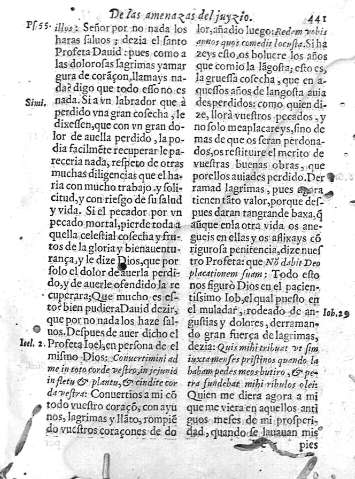 De las amenazas del juyzio.
441
Ps. 55.
illos: Señor por no nada los
haras saluos; dezia el santo
Profeta Dauid: pues como a
las dolorosas lagrimas y amar
gura de coraçon, llamays na-
da? digo que todo esso no es
Simi.
nada. Si a vn labrador que à
perdido vna gran cosecha, le
dixessen, que con vn gran do-
lor de auella perdido, la po-
dia facilmẽte recuperar le pa-
receria nada, respeto de otras
muchas diligencias que el ha-
ria con mucho trabajo, y soli-
citud, y con riesgo de su salud
y vida. Si el pecador por vn
pecado mortal, pierde toda a
quella celestial cosecha y fru-
tos de la gloria y bienauentu-
rança, y le dize Dios, que por
solo el dolor de auerla perdi-
do, y de auerle ofendido, la re
cuperara; Que mucho es es-
to? bien pudiera Dauid dezir,
que por no nada los haze sal-
uos. Despues de auer dicho el
Ioel. 2.
Profeta Ioel, en persona de el
mismo Dios: Conuertimini ad
me in toto corde vestro, in ieiunio
in fletu & planctu, & scindite cor
da vestra: Conuertios a mi cõ
todo vuestro coraçõ, con ayu
nos, lagrimas y llãto, rompiẽ
do vuestros coraçones de do
lor, añadio luego: Reddam vobis
annos quos comedit locusta. Si ha
zeys esto, os boluere los años
que comio la lãgosta; esto es,
la gruessa cosecha, que en a-
quessos años de langosta auia
des perdidos: como quien di-
ze, llorà vuestros pecados, y
no solo me aplacareys, sino de
mas de que os seran perdona-
dos, os restituire el merito de
vuestras buenas obras, que
por ellos auiades perdido. Der
ramad lagrimas, pues agora
tienen tãto valor, porque des-
pues daran tangrande baxa, q̃
aũque en la otra vida os ane-
gueis en ellas y os aflixays cõ
rigurosa penitencia, dize nues
tro Profeta: que Nõ dabit Deo
placationem suam: Todo esto
nos figurò Dios en el pacien-
tissimo Iob, el qual puesto en
Iob. 29
el muladar, rodeado de an-
gustias y dolores, derraman-
do gran fuerça de lagrimas,
dezia: Quis mihi tribuat vt sim
iuxta menses pristinos quando la
babam pedes meos butiro, & pe-
tra fundebat mihi ribulos olei:
Quien me diera agora a mi
que me viera en aquellos anti
guos meses de mi prosperi-
dad, quando se lauauan mis
pies